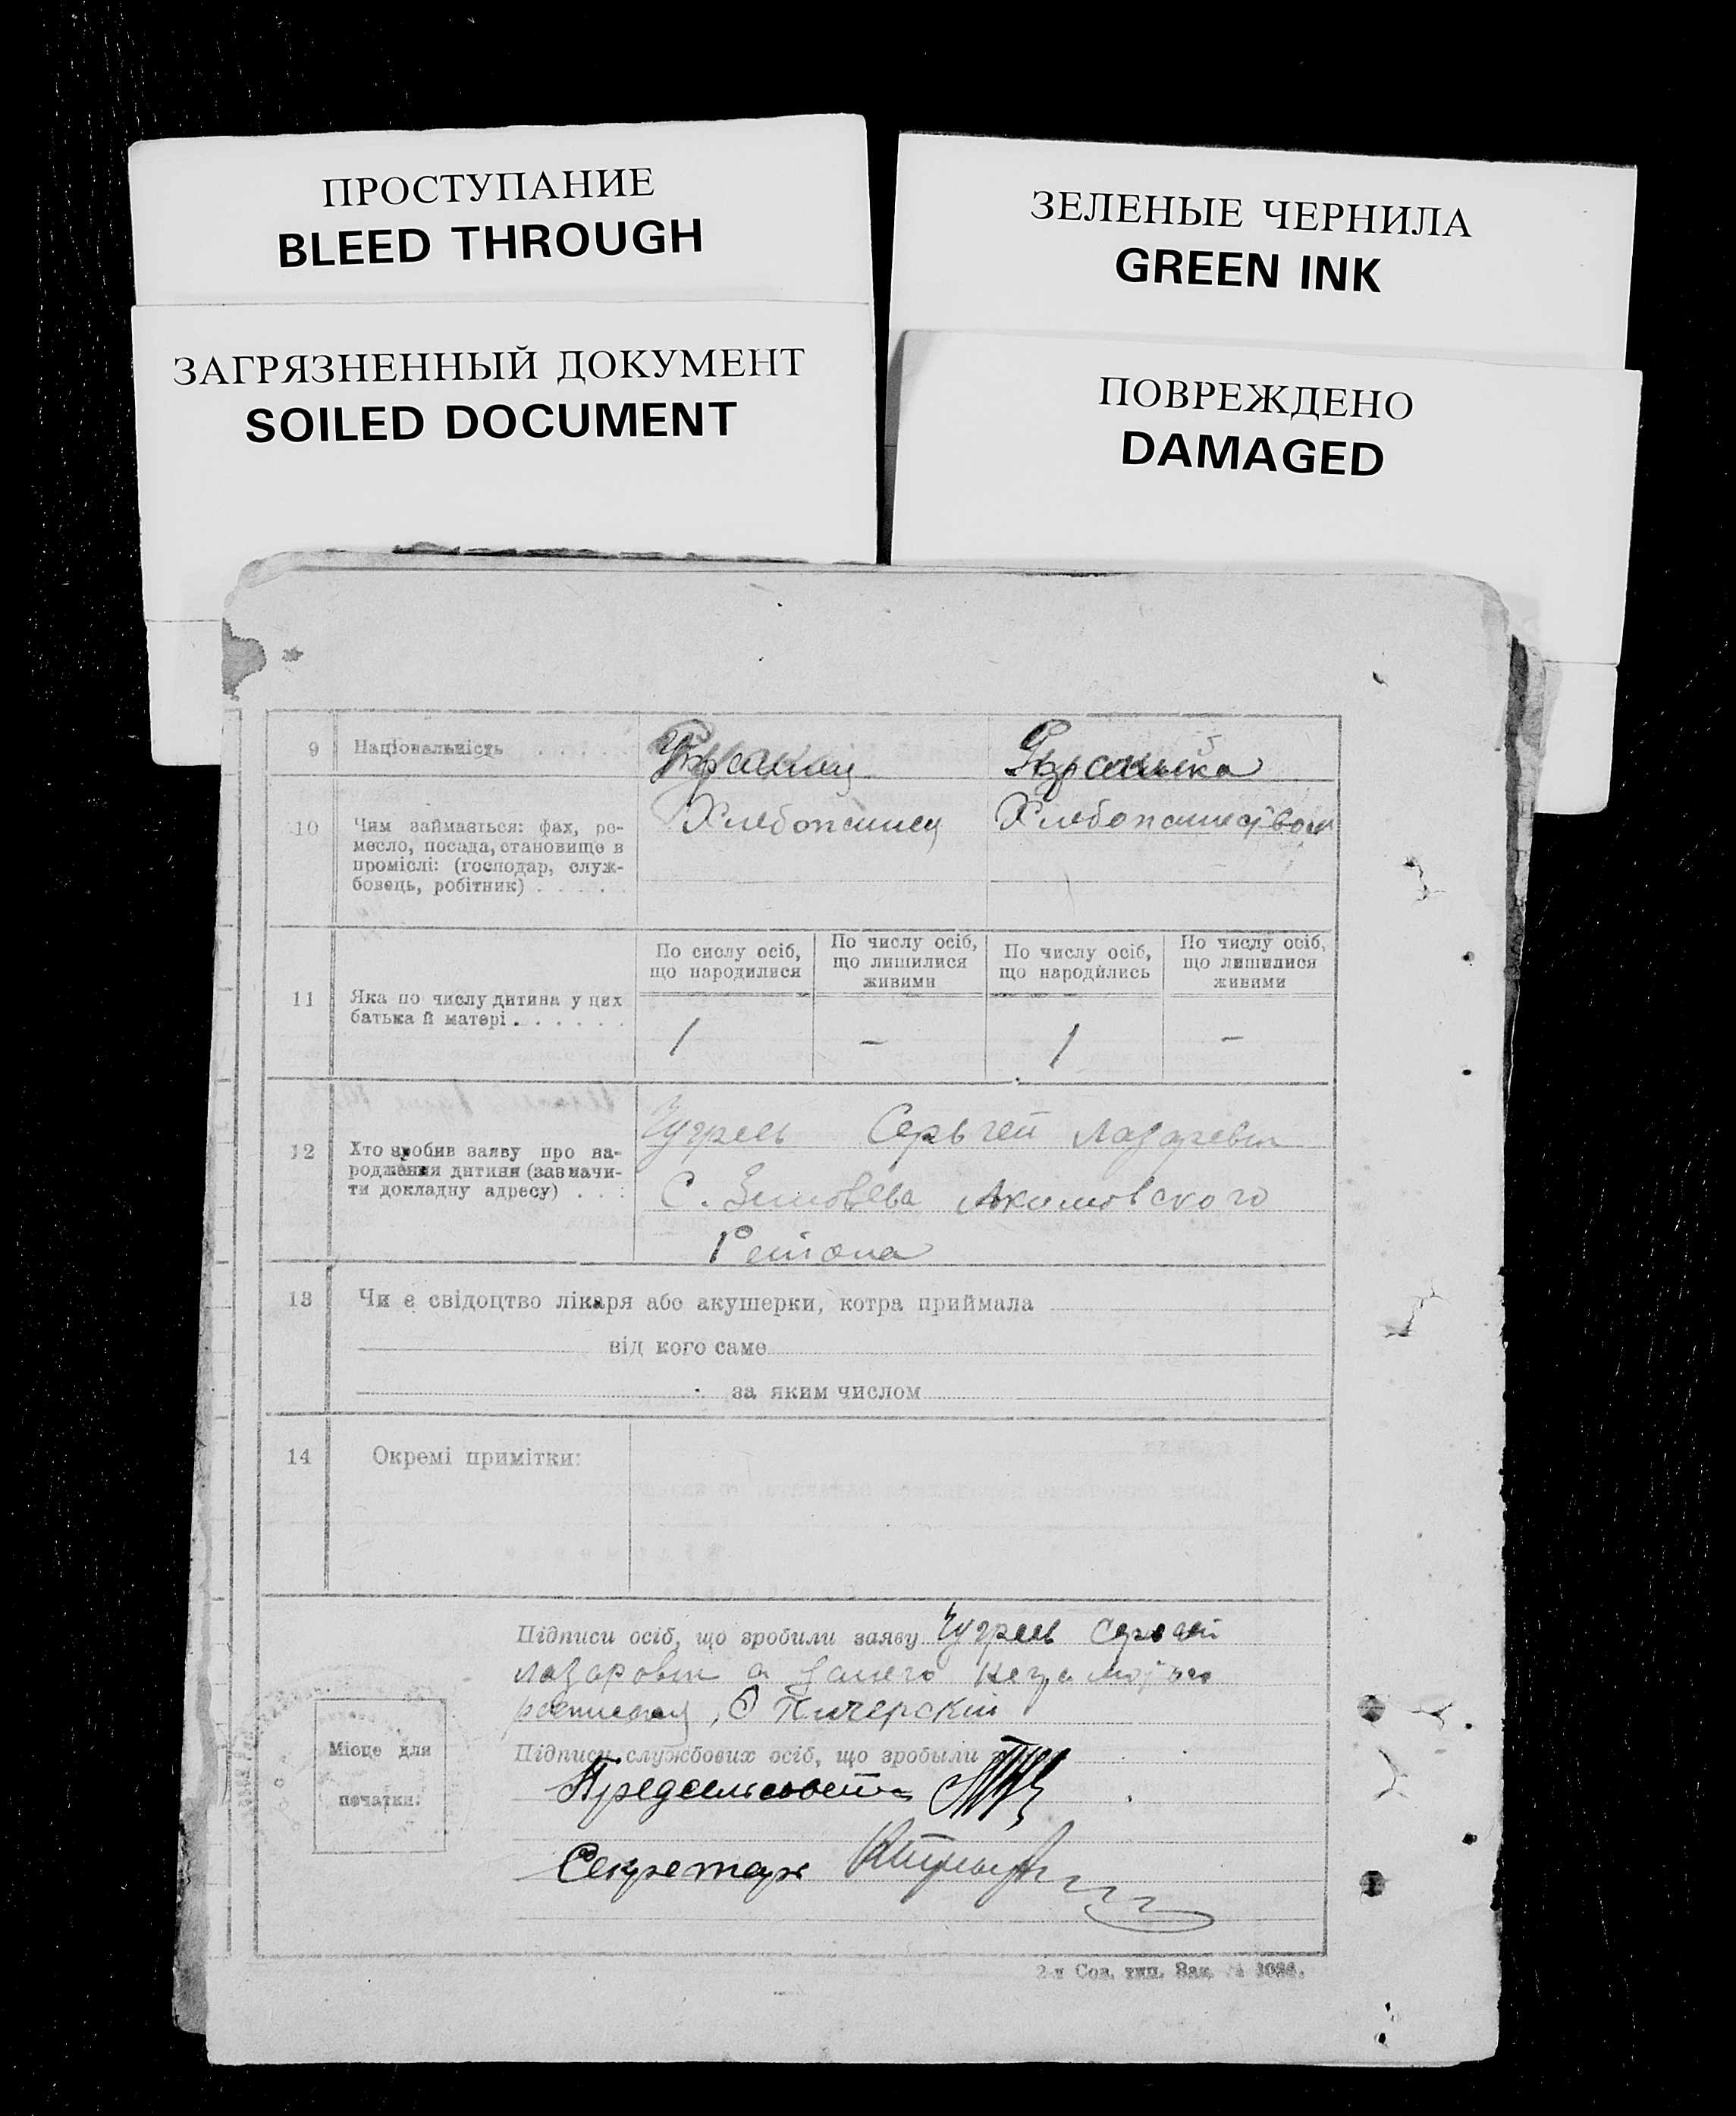 ПРОСТУПАНИЕ
BLEED THROUGH
ЗЕЛЕНЫЕ ЧЕРНИЛА
GREEN INK
ЗАГРЯЗНЕННЫЙ ДОКУМЕНТ
SOILED DOCUMENT
ПОВРЕЖДЕНО
DAMAGED
9 Національність
10 Чим займається: фах, ре-
месло, посада, становище в
промислі: (господар, служ-
бовець, робітник)
Хлебопашец
Хлебопашеством
11 Яка по числу дитина у цих
батька й матері
По сислу осіб,
що народилися
По числу осіб,
що лишилися
живими
По числу осіб,
що народились
По числу осіб,
що лишилися
живими
1 - 1 -
12 Хто зробив заяву про на-
родження дитини (зазначи-
ти докладну адресу)
Сергей
С. Акимовского
Району
13 Чи є свідоцтво лікаря або акушерки, котра приймала
від кого саме
за яким числом
14 Окремі примітки:
Підписи осіб, що зробили заяву Сергей
а за него
Печерский
Місце для
печатки:
Підписи службових осіб, що зробыли
Предсельсовета
Секретарь
2-я Сов. тип. Зак. №